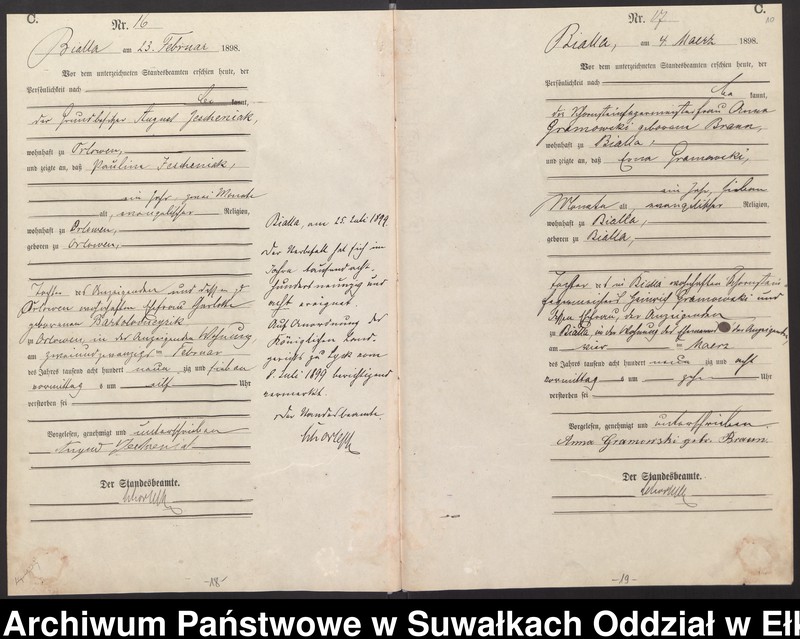 C.
Nr. 16
Bialla am 23. Februar 1898.
Vor dem unterzeichneten Standesbeamten erschien heute, der
Persönlichkeit nach
be kannt,
der Grundbesitzer August Jeschenick,
wohnhaft zu Orlowen,
und zeigte an, daß Pauline Jeschenick,
ein Jahr zwei Monate
alt, evangelischer Religion,
wohnhaft zu Orlowen,
geboren zu Orlowen,
Tochter des Anzeigenden und dessen zu
Orlowen wohnhaften Ehefrau Charlotte
geborenen
zu Orlowen, in des Anzeigenden Wohnung,
am zweiundzwanzigsten Februar
des Jahres tausend acht hundert neun zig und sieben
vormittags um elf Uhr
verstorben sei
Vorgelesen, genehmigt und unterschrieben
August Jeschenick
Der Standesbeamte.
-18-
Bialla, am 25. Juli 1899.
Der Sterbefall hat sich im
Jahre tausend acht-
hundert neunzig und
acht ereignet.
Auf Anordnung des
Königlichen Land-
gerichts zu Lyck vom
8. Juli 1899 berichtigend
vermerkt.
Der Standesbeamte.
C.
Nr. 17
Bialla, am 4. Maerz 1898.
Vor dem unterzeichneten Standesbeamten erschien heute, der
Persönlichkeit nach
be kannt,
die Schornsteinfegermeisterfrau Anna
Gramowski geborene Braun,
wohnhaft zu Bialla,
und zeigte an, daß Erna Gramowski,
ein Jahr, sieben
Monate alt, evangelischer Religion,
wohnhaft zu Bialla,
geboren zu Bialla,
Tochter des in Bialla wohnhaften Schornstein-
fegermeisters Heinrich Gramowski und
dessen Ehefrau, der Anzeigenden
zu Bialla, in der Wohnung des Ehemanns der Anzeigenden,
am vier ten Maerz
des Jahres tausend acht hundert neun zig und acht
vormittags um zehn Uhr
verstorben sei
Vorgelesen, genehmigt und unterschrieben
Anna Gramowski geb. Braun
Der Standesbeamte.
-19-
Archiwum Państwowe w Suwałkach Oddział w Eł